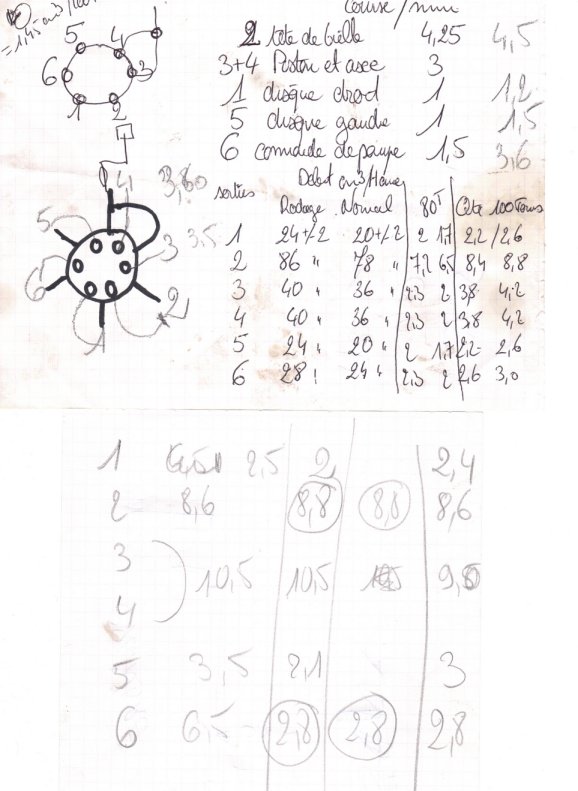 = 1,45 cm3/100
course/mm
2 tête de bielle 4,25 4,5
3+4 Piston et axe 3
1 disque droit 1 1,2
5 disque gauche 1 1,5
6 commande de pompe 1,5 3,6
5 4 3 2 1 6
Débit cm3/Heure
sorties Rodage Normal 80T 100 Tours
1 24+/-2 20+/-2 2 1,7 2,2/2,6
2 86 " 78 " 7,2 6,5 8,4 8,8
3 40 " 36 " 2,3 2 3,8 4,2
4 40 " 36 " 2,3 2 3,8 4,2
5 24 " 20 " 2 1,7 2,2 2,6
6 28 " 24 " 2,3 2 2,6 3,0
4 3,80
5 3 3,5
6 2
1
1 2,5 2 2,4
2 8,6 8,8 8,8 8,6
3
10,5 10,5
4
5 3,5 2,1 3
6 6,5 2,8 2,8 2,8